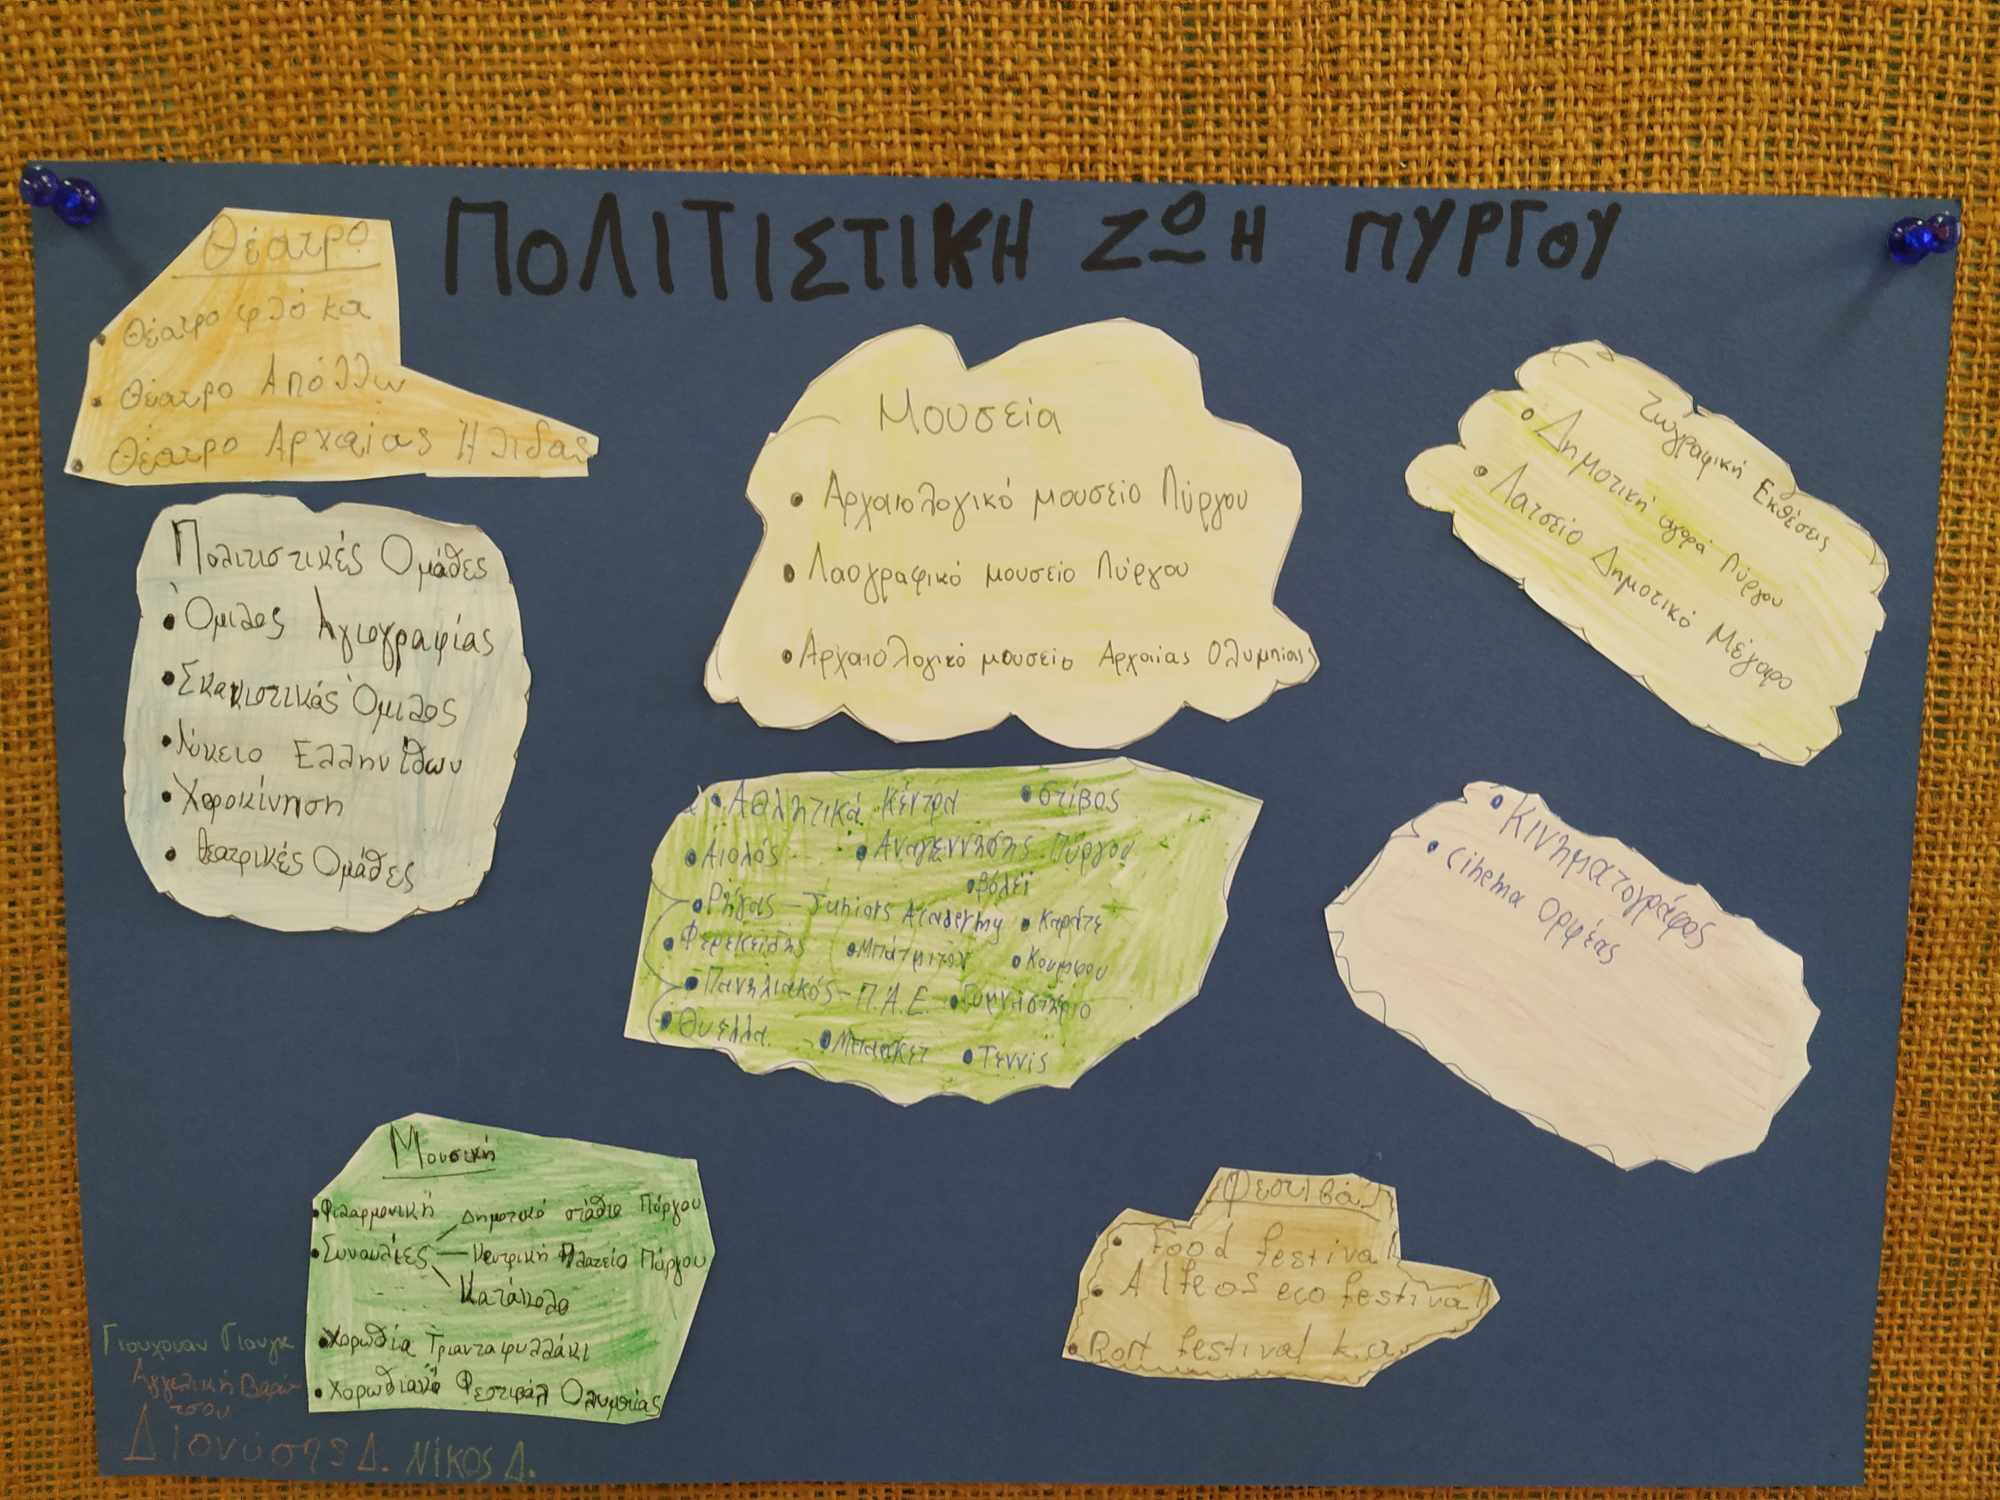 ΠΟΛΙΤΙΣΤΙΚΗ ΖΩΗ ΠΥΡΓΟΥ
Θέατρο
• Θέατρο φλόκα
• Θέατρο Απόλλω
• Θέατρο Αρχαίας Ήλιδας
Πολιτιστικές Ομάδες
• Όμιλος Αγιογραφίας
• Σκακιστικός Όμιλος
• Λύκειο Ελληνίδων
• Χοροκίνηση
• Θεατρικές Ομάδες
Μουσεία
• Αρχαιολογικό μουσείο Πύργου
• Λαογραφικό μουσείο Πύργου
• Αρχαιολογικό μουσείο Αρχαίας Ολυμπίας
Ζωγραφική Εκθέσεις
• Δημοτική αγορά Πύργου
• Λατσείο Δημοτικό Μέγαρο
• Αθλητικά Κέντρα • στίβος
• Αιολός • Αναγεννησης Πύργου
• βόλεϊ
• Ρήγας – Juniors Academy • Καράτε
• Φερεκείδης • Μπάτμιτον • Κουμφου
• Πανηλιακός – Π.Α.Ε. • Γυμναστήριο
• Θυελλα • Μπασκετ • Τεννις
• Κινηματογράφος
• cinema Ορφέας
Μουσική
• Φιλαρμονική
• Συναυλίες – Δημοτικό στάδιο Πύργου
– Κεντρική Πλατεία Πύργου
Κατάκολο
• Χορωδία Τριανταφυλλάκι
• Χορωδιακό Φεστιβάλ Ολυμπίας
Φεστιβάλ
• Food festival
• Alfeos eco festival
• Port festival κ.α.
Γιουχουαν Γιουγκ
Αγγελική Βαρών
τσου
Διονύσης Δ. ΝΙΚΟΣ Δ.